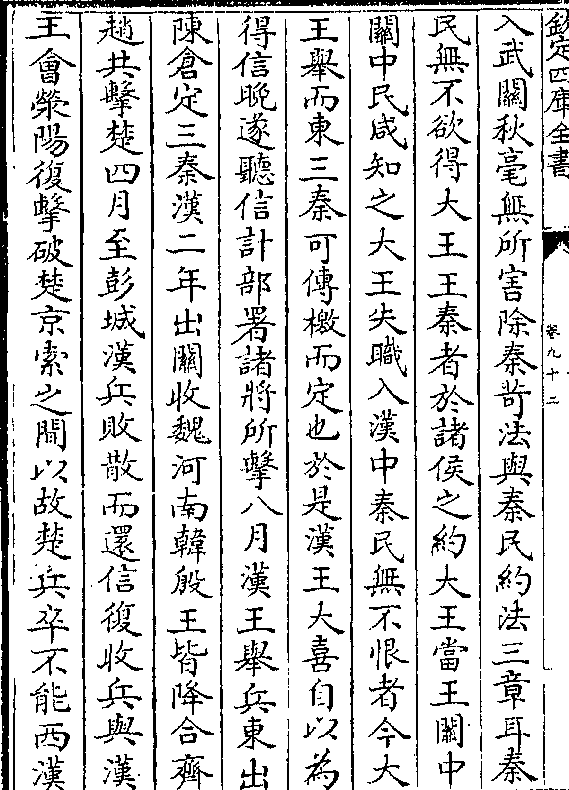 欽定四庫全書
卷九十二
入武關秋毫無所害除秦苛法與秦民約法三章耳秦
民無不欲得大王王秦者於諸侯之約大王當王關中
關中民咸知之大王失職入漢中秦民無不恨者今大
王舉而東三秦可傳檄而定也於是漢王大喜自以為
得信晩遂聽信計部署諸將所擊八月漢王舉兵東出
陳倉定三秦漢二年出關收魏河南韓殷王皆降合齊
趙共擊楚四月至彭城漢兵敗散而還信復收兵與漢
王會滎陽復擊破楚京索之間以故楚兵卒不能西漢